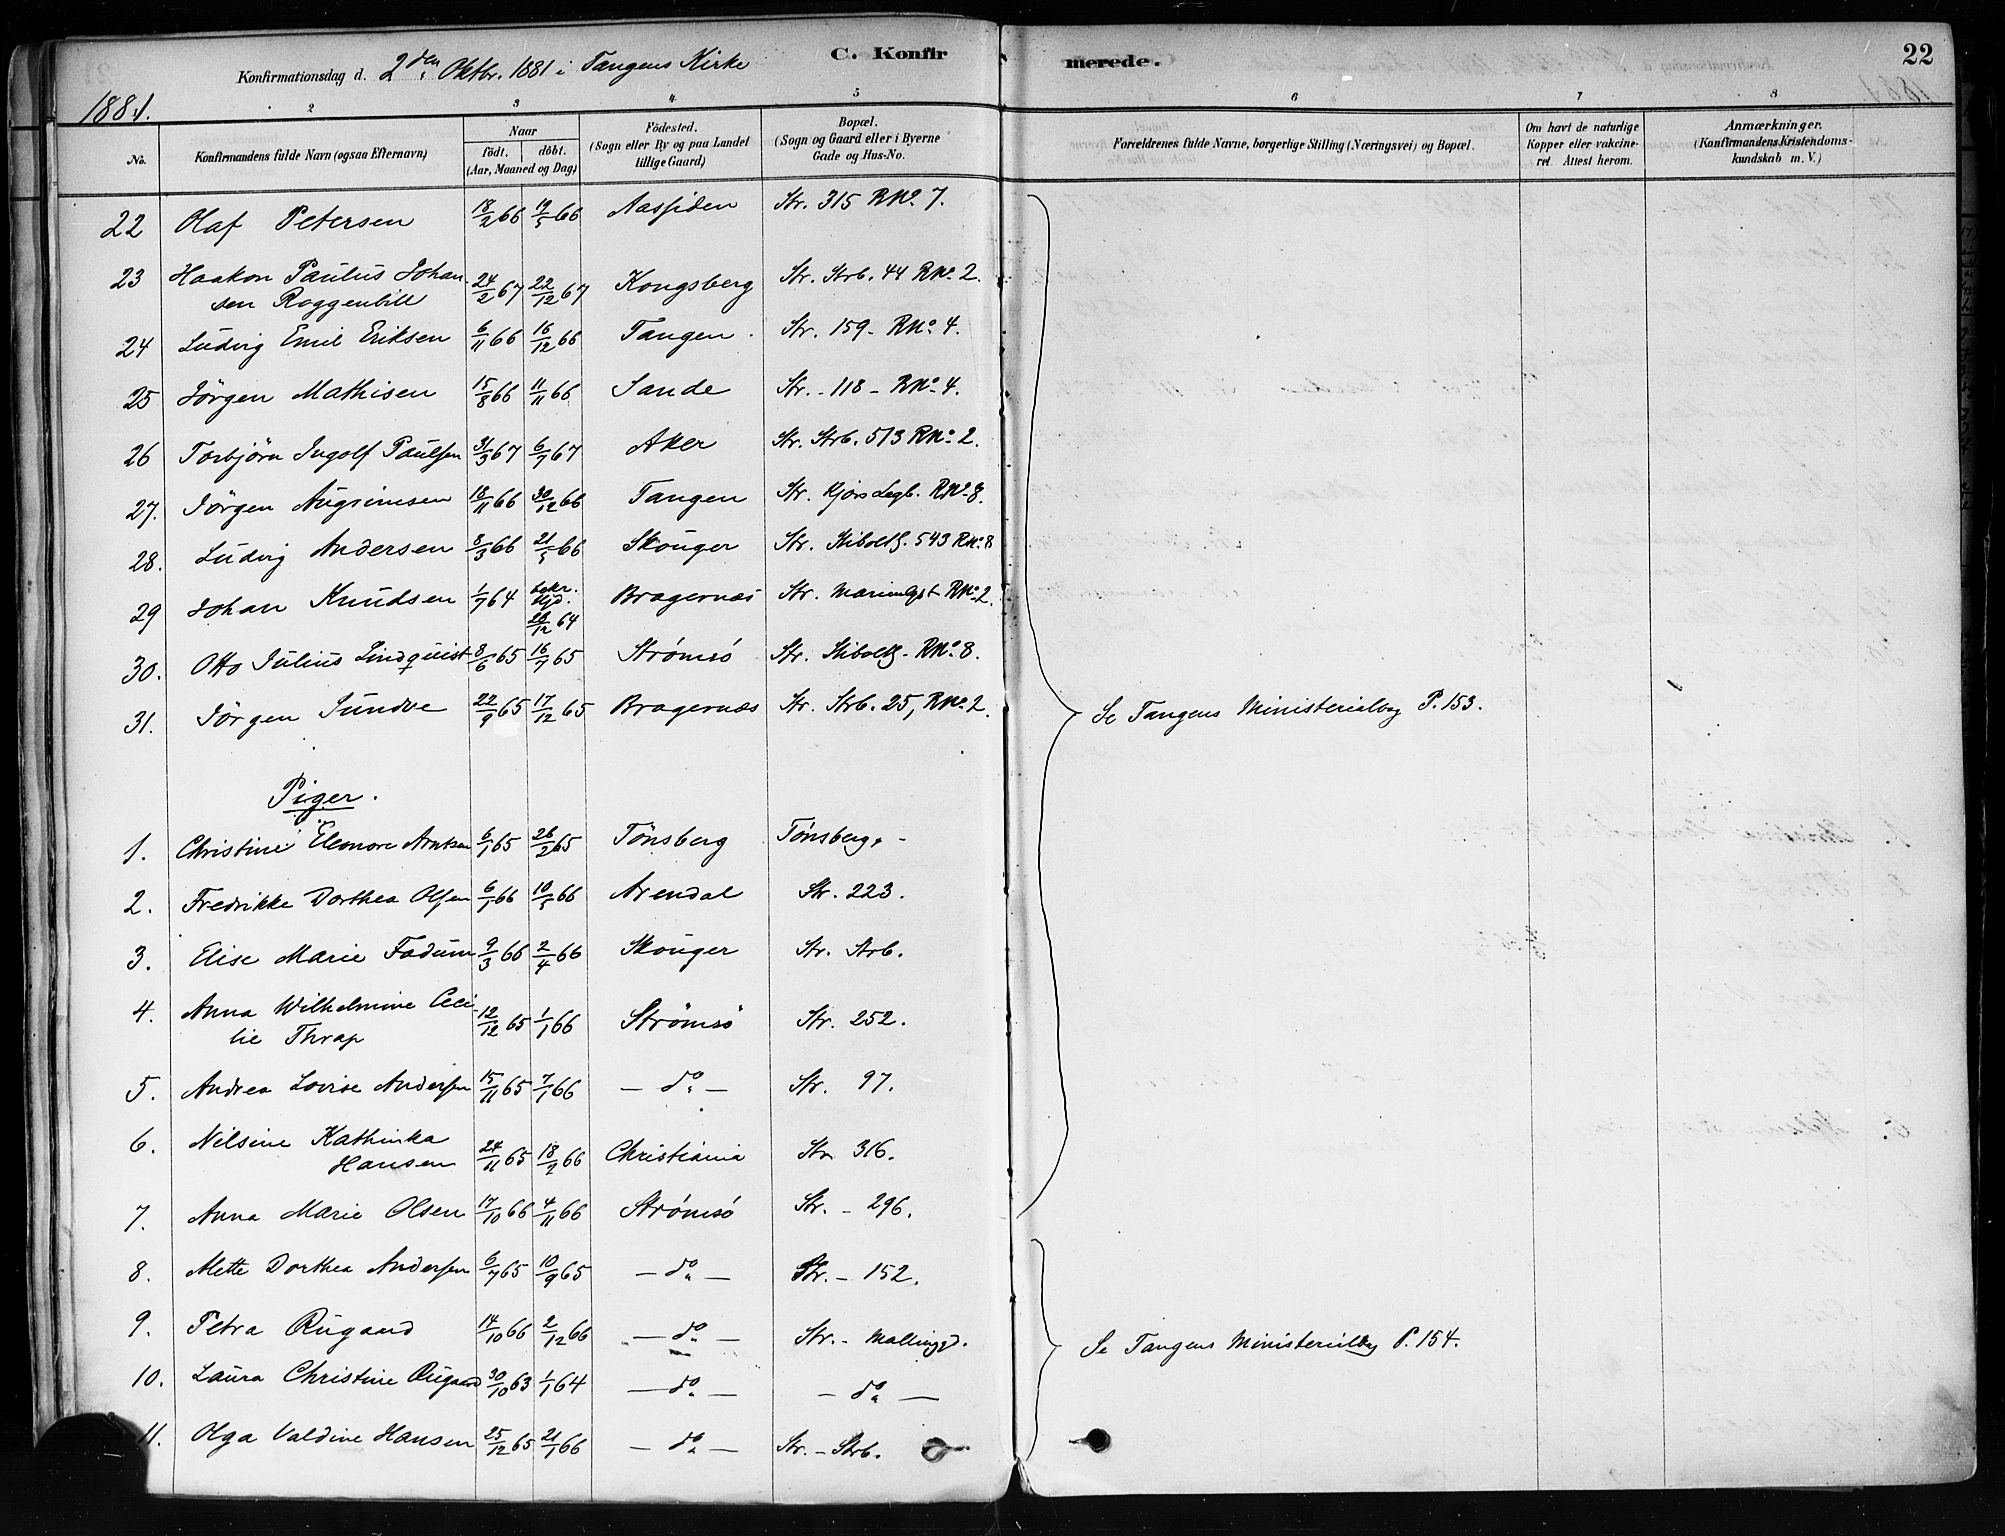 Konfirmationsdag d. 2den Oktbr. 1881 i Tangens Kirke
C. Konfirmerede.
22
1881.
2 3 4 5 6 7 8
No. Konfirmandens fulde Navn (ogsaa Efternavn) Naar födt. döbt. (Aar, Maaned og Dag) Födested. (Sogn eller By og paa Landet tillige Gaard) Bopæl. (Sogn og Gaard eller i Byerne Gade og Hus-No. Forældrenes fulde Navne, borgerlige Stilling (Næringsvei) og Bopæl. Om havt de naturlige Kopper eller vakcineret. Attest herom. Anmærkninger. (Konfirmandens Kristendomskundskab m. V.)
22 Olaf Petersen 18/2 66 19/5 66 Aassiden Str. 315 RNo. 7.
23 Haakon Paulus Johan-
sen Roggenbill 24/2 67 22/12 67 Kongsberg Str. Strb. 44 RNo. 2.
24 Ludvig Emil Eriksen 6/11 66 16/12 66 Tangen. Str. 159 - RNo. 4.
25 Jörgen Mathisen 15/8 66 11/11 66 Sande Str. - 118 - RNo. 4.
26 Torbjörn Ingolf Paulsen 31/3 67 6/7 67 Aker Str. Strb. 513 RNo. 2.
27. Jörgen Augrimsen 18/11 66 30/12 66 Tangen Str. Kjørs Legb. RNo. 8.
28. Ludvig Andersen 8/3 66 21/5 66 Skouger Str. Stiboltg. 543 RNo. 8
29 Johan Knudsen 1/7 64 bekr. Hjd. 28/12 64 Bragernæs Str. RNo. 2.
30. Otto Julius Lindquist 8/6 65 16/7 65 Strømsö Str. Stiboltg. RNo. 8.
31. Jörgen Sundve 22/9 65 17/12 65 Bragernæs Str. Strb. 25, RNo. 2.
Se Tangens Ministerialbog P. 153.
Piger.
1. Christine Eleonore Arntsen 6/1 65 26/2 65 Tönsberg Tönsberg. -
2. Fredrikke Dorthea Olsen 6/1 66 10/5 66 Arendal Str. 223.
3. Elise Marie Fadum 9/3 66 2/4 66 Skouger Str. Strb.
4. Anna Wilhelmine Ceci-
lie Thrap 12/12 65 1/1 66 Strömsö Str. 252.
5. Andrea Lovise Andersen 15/11 65 7/1 66 - do - Str. 97.
6. Nilsine Kathinka
Hansen 24/11 65 18/2 66 Christiania Str. 316.
7. Anna Marie Olsen 17/10 66 4/11 66 Strömsö Str. - 296.
8. Mette Dorthea Andersen 6/7 65 10/9 65 - do - Str. - 152.
9. Petra Rugaard 14/10 66 2/12 66 - do - Str. - Mallingd.
Se Tangens Ministerialbog P. 154.
10. Laura Christine Rugaard 30/10 63 1/1 64 - do - - do -
11. Olga Valdine Hansen 25/12 65 21/1 66 - do - Str. - Strb.